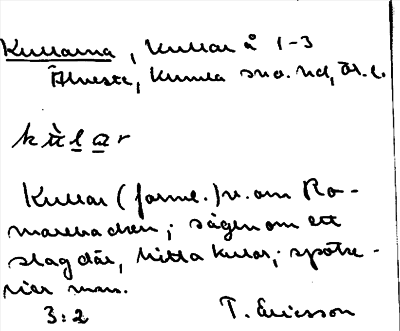 Kullarna, Kullar å 1-3
Älvesta, Kumla snd. hd, Ör. l.
kùlar
Kullar (forml.) v. om Ro-
marebacken; sägen om ett
slag där, hitta kulor; spöke-
rier m m.
3:2 T. Ericsson